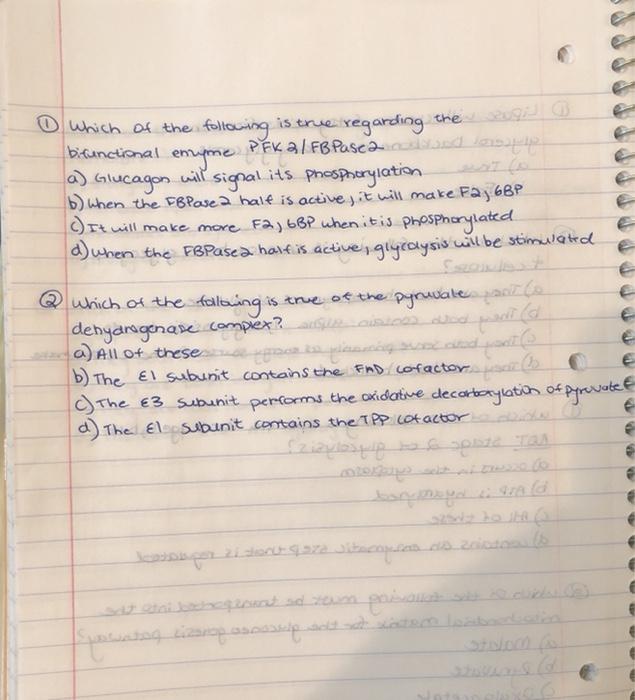 ① Which of the following is true regarding the
bifunctional enzyme PFK2/FBPase2
a) Glucagon will signal its phosphorylation
b) When the FBPase2 half is active, it will make F2,6BP
c) It will make more F2,6BP when it is phosphorylated
d) When the FBPase2 half is active, glycolysis will be stimulated
② Which of the following is true of the pyruvate
dehydrogenase complex?
a) All of these
b) The E1 subunit contains the FAD cofactor
c) The E3 subunit performs the oxidative decarboxylation of pyruvate
d) The E1 subunit contains the TPP cofactor